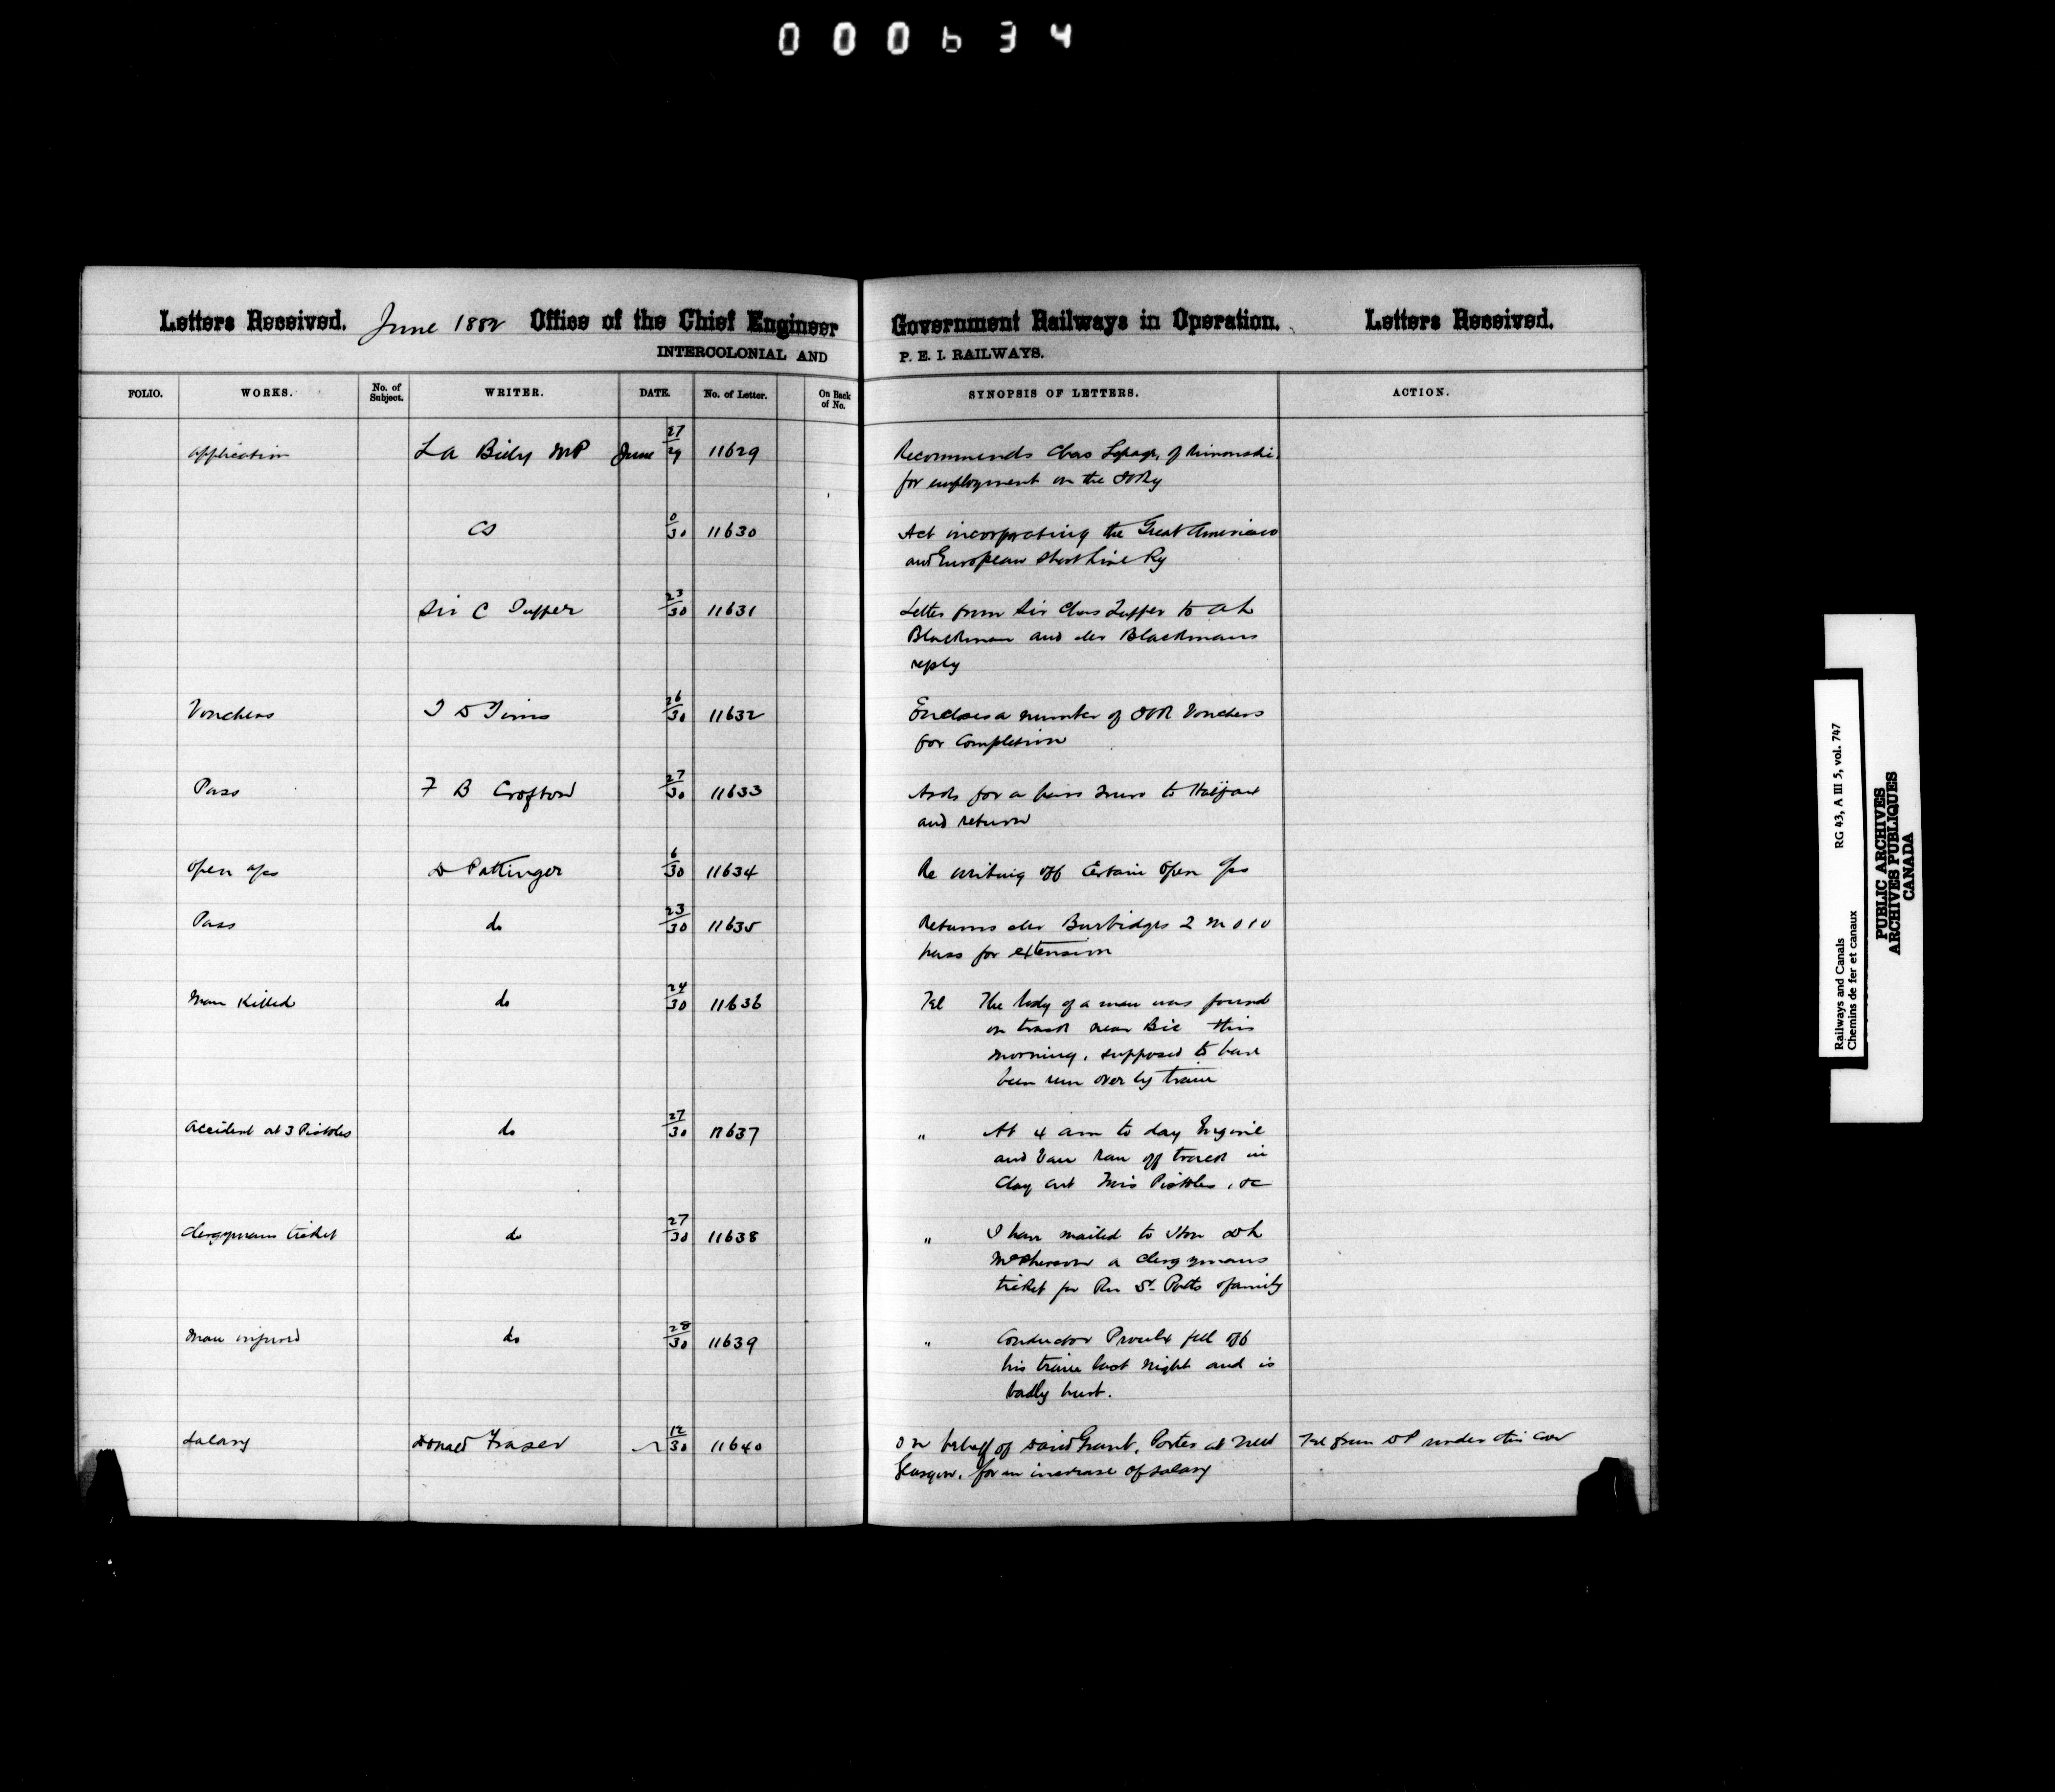 000634
Letters Received. June 1882 Office of the Chief Engineer Government Railways in Operation. Letters Received.
INTERCOLONIAL AND P. E. I. RAILWAYS.
FOLIO. WORKS. No. of Subject. WRITER. DATE. No. of Letter. On Back of No. SYNOPSIS OF LETTERS. ACTION.
Application La Billy MP June 27/29 11629 Recommends Chas Lepage, of Rimouski
for employment on the ICRy
CS 0/30 11630 Act incorporating the Great American
and European Short Line Ry
Sir C Tupper 23/30 11631 Letter from Sir Chas Tupper to A L
Blackman and Mr Blackmans
reply
Vouchers J D Timms 26/30 11632 Encloses a number of ICR Vouchers
for Completion
Pass F B Crofton 27/30 11633 Asks for a pass to Halifax
and return
Open a/cs D Pottinger 6/30 11634 Re writing off Certain Open a/cs
Pass do 23/30 11635 Returns Mr Burbidges 2
pass for extension
Man Killed do 24/30 11636 Tel The body of a man was found
on track near Bic this
morning, supposed to have
been run over by train
Accident at 3 Pistoles do 27/30 11637 " At 4 am to day Engine
and Van ran off track in
Clay cut Trois Pistoles, &c
Clergymans ticket do 27/30 11638 " I have mailed to Hon D L
McPherson a clergymans
ticket for Rev Potts & family
Man injured do 28/30 11639 " Conductor Proulx fell off
his train last night and is
badly hurt.
Salary Donald Fraser 12/30 11640 On behalf of David Grant, Porter at New Tel from DP under this Cover
Glasgow, for an increase of salary
Railways and Canals RG 43, A III 5, vol. 747
Chemins de fer et canaux
PUBLIC ARCHIVES
ARCHIVES PUBLIQUES
CANADA